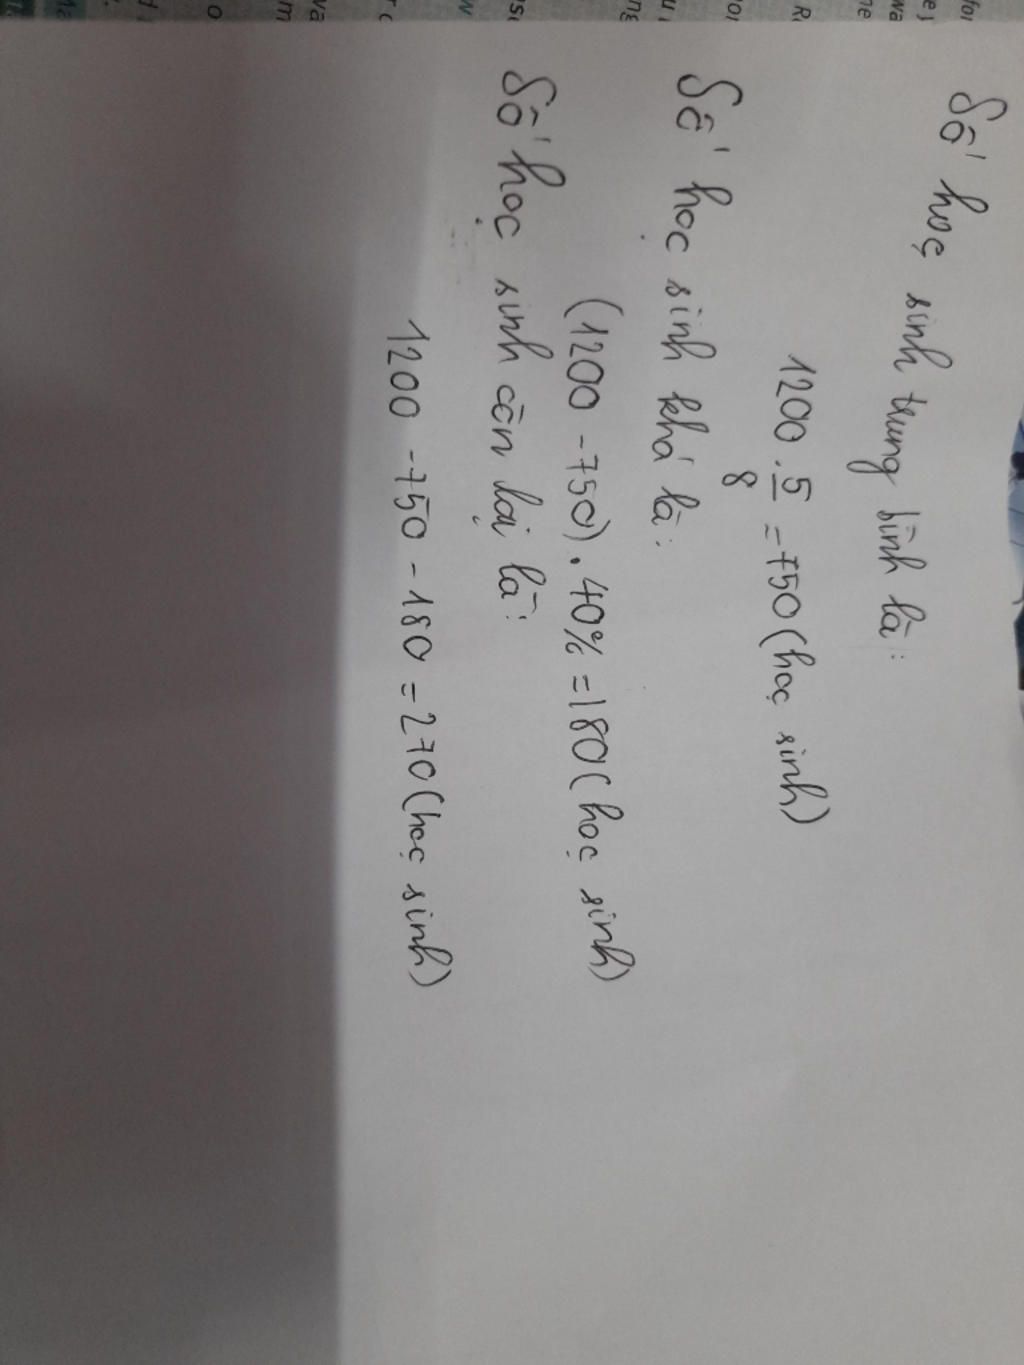 Số học sinh trung bình là:
1200 . 5/8 = 750 (học sinh)
Số học sinh khá là:
(1200 - 750) . 40% = 180 (học sinh)
Số học sinh còn lại là:
1200 - 750 - 180 = 270 (học sinh)